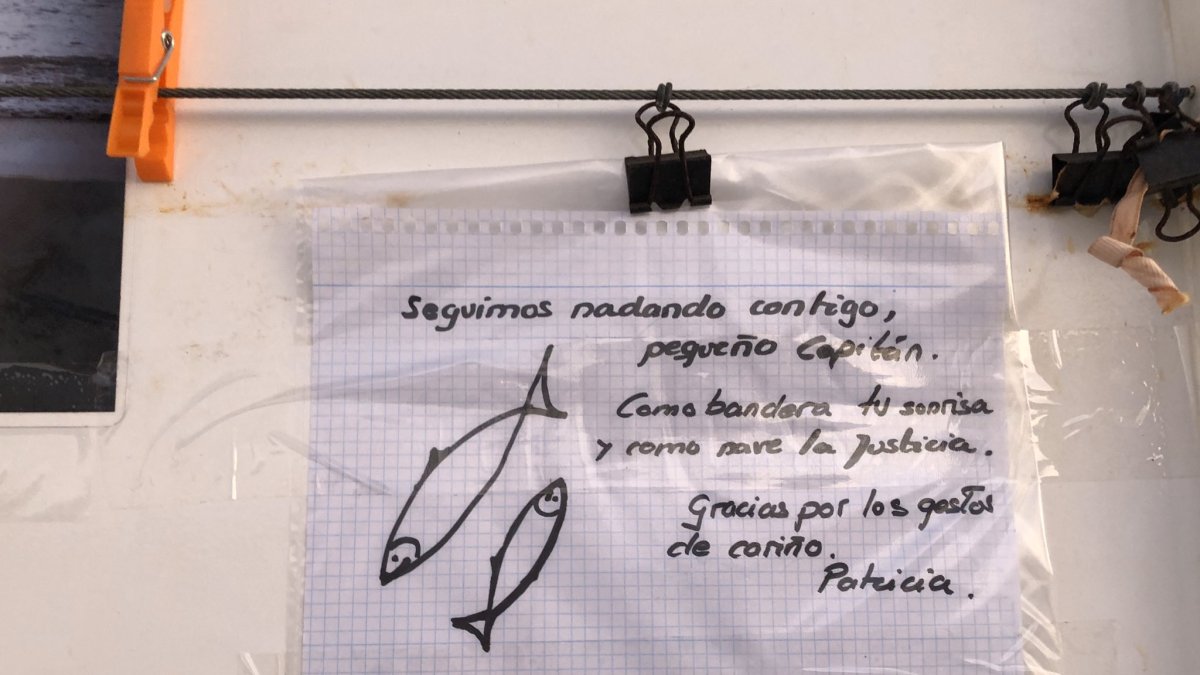 Seguimos nadando contigo,
pequeño Capitán.
Como bandera tu sonrisa
y como nave la Justicia.
Gracias por los gestos
de cariño.
Patricia.